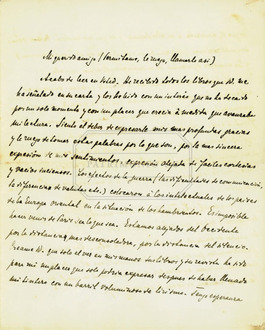 Mi querido amigo (permítame, le ruego, llamarle así)
Acabo de leer en usted. He recibido todos los libros que Vd. me
ha señalado en su carta y los he leído con un interés que no ha decaído
por un solo momento y con un placer que crecía a medida que avanzaba
mi lectura. Siento el deber de expresarle mis más profundas gracias
y le ruego de tomar estas palabras por lo que son, por la más sincera
expresión de mis sentimientos, expresión alejada de fáciles cortesías
y vacíos lirismos. Los efectos de la guerra (las dificultades de comunicación,
la diferencia de valutas etc.) colocaron a los intelectuales de los países
de la Europa oriental en la situación de los hambrientos. Es imposible
hacer venir de París un libro
Estamos alejados del Occidente
por la distancia y, mas desconsoladora, por la distancia del silencio.
Créame Vd. que solo el ver en mis manos sus libros y su revista ha sido
para mí un placer que solo podría expresar después de haber llenado
mi tintero con un barril voluminoso de lirismo. Tengo esperanza